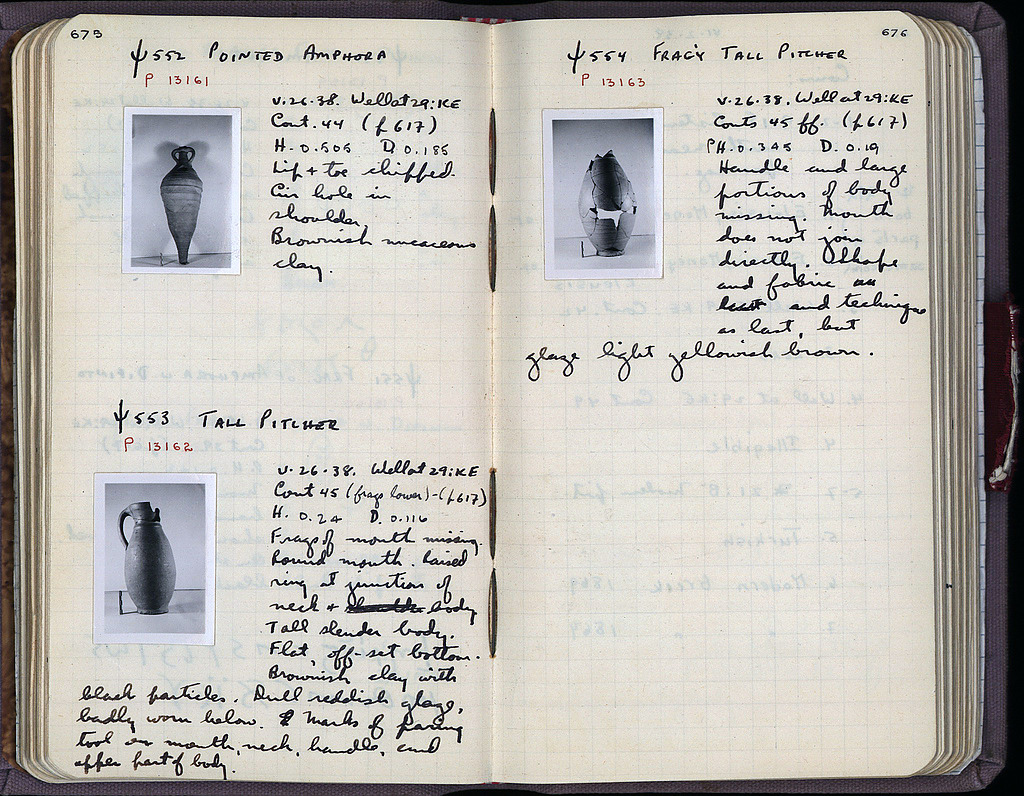 675
ψ 552 POINTED AMPHORA
P 13161
V.26.38. Well at 29:KE
Cont. 44 (p617)
H. 0.505 D. 0.185
Lip + toe chipped.
Air hole in
shoulder
Brownish micaceous
clay.
ψ 553 TALL PITCHER
P 13162
V.26.38. Well at 29:KE
Cont 45 (frags lower)-(p617)
H. 0.24 D. 0.116
Frags of mouth missing.
Round mouth. Raised
ring at junction of
neck + body
Tall slender body.
Flat, off-set bottom.
Brownish clay with
black particles. Dull reddish glaze,
badly worn below. Marks of paring
tool on mouth, neck, handle, and
upper part of body.
676
ψ 554 FRAG'Y TALL PITCHER
P 13163
V.26.38. Well at 29:KE
Conts 45 ff. (p617)
PH. 0.345 D. 0.19
Handle and large
portions of body
missing. Mouth
does not join
directly. Shape
and fabric
and technique
as last, but
glaze light yellowish brown.